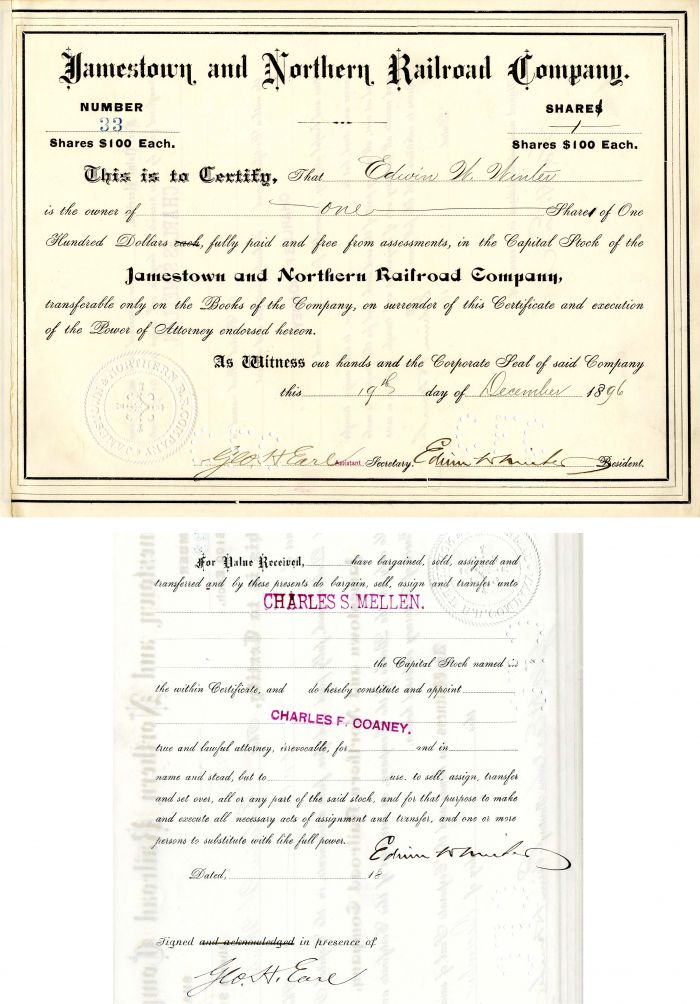 Jamestown and Northern Railroad Company.
NUMBER
33
Shares $100 Each.
SHARES
1
Shares $100 Each.
This is to Certify, That Edwin W. Winter
is the owner of one Shares of One
Hundred Dollars each, fully paid and free from assessments, in the Capital Stock of the
Jamestown and Northern Railroad Company,
transferable only on the Books of the Company, on surrender of this Certificate and execution
of the Power of Attorney endorsed hereon.
As Witness our hands and the Corporate Seal of said Company
this 19th day of December 1896
JAMESTOWN & NORTHERN R.R. COMPANY
Geo. H. Earl Assistant Secretary. Edwin W Winter President.
For Value Received, have bargained, sold, assigned and
transferred and by these presents do bargain, sell, assign and transfer unto
CHARLES S. MELLEN.
the Capital Stock named in
the within Certificate, and do hereby constitute and appoint
CHARLES F. COANEY.
true and lawful attorney, irrevocable, for and in
name and stead, but to use, to sell, assign, transfer
and set over, all or any part of the said stock, and for that purpose to make
and execute all necessary acts of assignment and transfer, and one or more
persons to substitute with like full power.
Edwin W Winter
Dated, 18
Signed and acknowledged in presence of
Geo. H. Earl